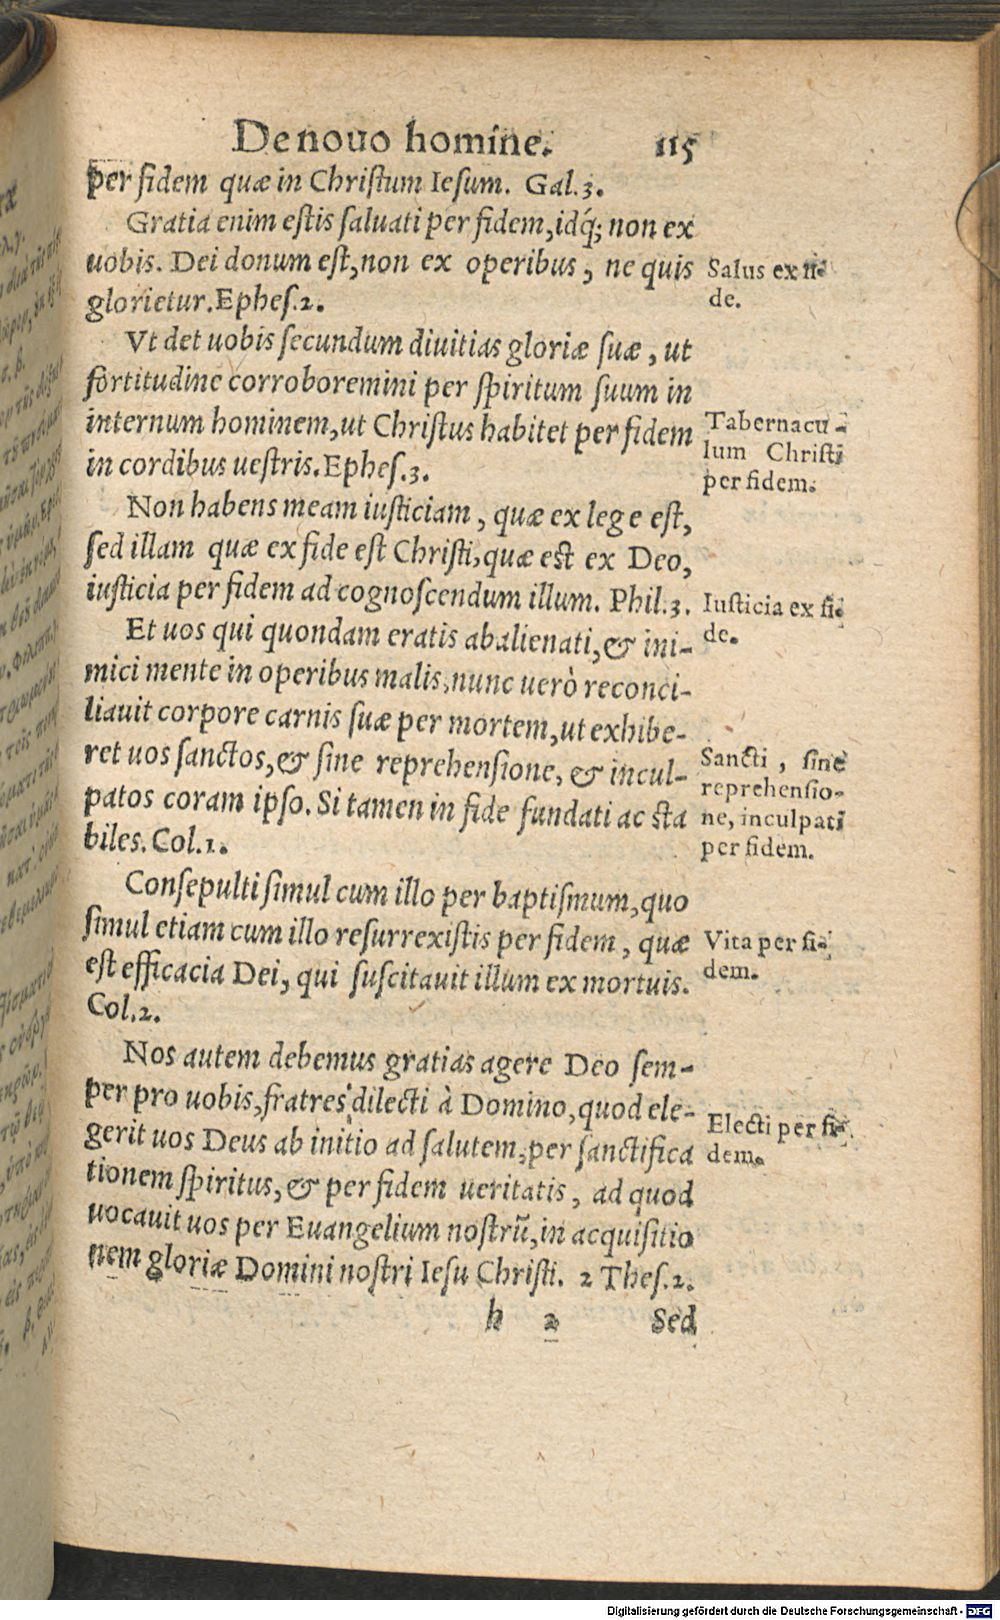 De nouo homine. 115
per fidem quæ in Christum Iesum. Gal.3.
Gratia enim estis saluati per fidem, idq́; non ex
uobis. Dei donum est, non ex operibus, ne quis
glorietur. Ephes.2.
Salus ex fi-
de.
Vt det uobis secundum diuitias gloriæ suæ, ut
fortitudine corroboremini per spiritum suum in
internum hominem, ut Christus habitet per fidem
in cordibus uestris. Ephes.3.
Tabernacu-
lum Christi
per fidem.
Non habens meam iusticiam, quæ ex lege est,
sed illam quæ ex fide est Christi, quæ est ex Deo,
iusticia per fidem ad cognoscendum illum. Phil.3.
Iusticia ex fi-
de.
Et uos qui quondam eratis abalienati, & ini-
mici mente in operibus malis, nunc uerò reconci-
liauit corpore carnis suæ per mortem, ut exhibe-
ret uos sanctos, & sine reprehensione, & incul-
patos coram ipso. Si tamen in fide fundati ac sta
biles. Col.1.
Sancti, sine
reprehensio-
ne, inculpati
per fidem.
Consepulti simul cum illo per baptismum, quo
simul etiam cum illo resurrexistis per fidem, quæ
est efficacia Dei, qui suscitauit illum ex mortuis.
Col.2.
Vita per fi-
dem.
Nos autem debemus gratias agere Deo sem-
per pro uobis, fratres dilecti à Domino, quod ele-
gerit uos Deus ab initio ad salutem, per sanctifica
tionem spiritus, & per fidem ueritatis, ad quod
uocauit uos per Euangelium nostrũ, in acquisitio
nem gloriæ Domini nostri Iesu Christi. 2 Thes.2.
Electi per fi-
dem.
h 2 Sed
Digitalisierung gefördert durch die Deutsche Forschungsgemeinschaft - DFG